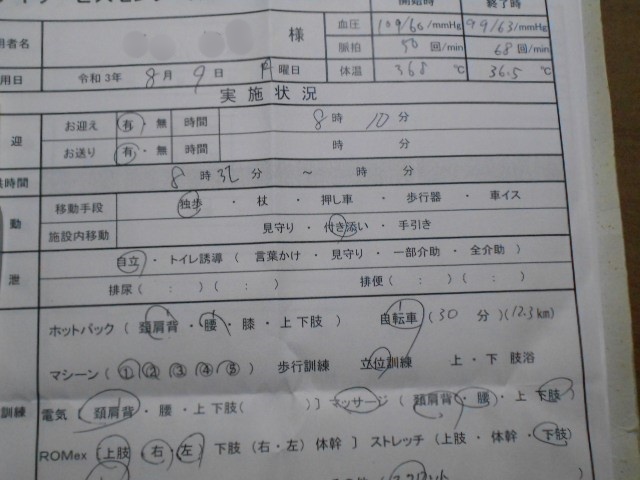 開始時 終了時
用者名 様 血圧 109/60/mmHg 99/63/mmHg
脈拍 50 回/min 68 回/min
用日 令和3年 8月 9日 月曜日 体温 36.8 ℃ 36.5 ℃
実施状況
迎 お迎え 有・無 時間 8時 10分
お送り 有・無 時間 時 分
時間 8時32分 ～ 時 分
動 移動手段 独歩 ・ 杖 ・ 押し車 ・ 歩行器 ・ 車イス
施設内移動 見守り ・ 付き添い ・ 手引き
泄 自立・トイレ誘導 ( 言葉かけ ・ 見守り ・ 一部介助 ・ 全介助 )
排尿 ( : ) ( : ) 排便 ( : ) ( : )
ホットパック ( 頚肩背・腰・膝・上 下肢 ) 自転車 (30 分) (12.3km)
マシーン ( ① ② ③ ④ ⑤ ) 歩行訓練 立位訓練 上・下 肢浴
訓練 電気 ( 頚肩背・腰・上 下肢( )] マッサージ ( 頚肩背・腰・上 下肢
ROMex [上肢 (右・左) 下肢 (右・左) 体幹 ] ストレッチ (上肢・体幹・下肢)